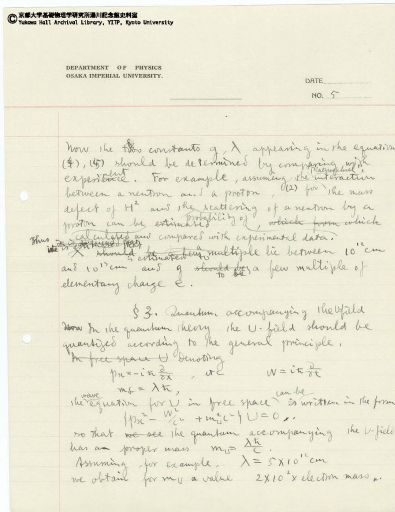 ©京都大学基礎物理学研究所湯川記念館史料室
Yukawa Hall Archival Library, YITP, Kyoto University
DEPARTMENT OF PHYSICS
OSAKA IMPERIAL UNIVERSITY.
DATE
NO. 5
Now the two constants g, λ appearing in the equations
(4), (5) should be determined by comparing with
experiment. For example, assuming the interaction
between a neutron and a proton, (2) for the mass
defect of H² and the scattering of a neutron by a
proton can be estimated probability of, which from which
calculated and compared with experimental data.
Thus λ should multiple lie between 10¹²cm
and 10¹³cm and g should be to be a few multiple of
elementary charge e.
§3. Quantum accompanying the U-field
Now In the quantum theory the U-field should be
quantized according to the general principle.
In free space U denoting
pₓ = -iħ ∂/∂x, etc W = iħ ∂/∂t
m c = λħ,
the wave equation for U in free space can be is written in the form
{p² - W²/c² + m²c²} U = 0,
so that we see the quantum accompanying the U-field
has a proper mass m = λħ/c.
Assuming for example. λ = 5×10¹²cm
we obtain for m a value 2×10² × electron mass.